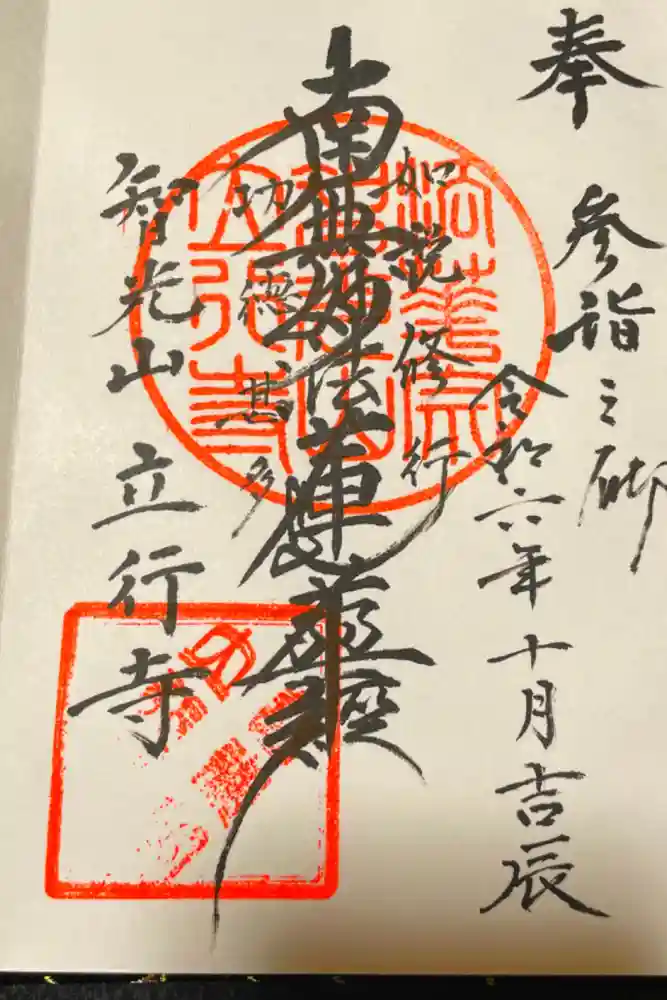 奉 参詣之砌
令和六年十月吉辰
如説修行
南無妙法蓮華経
功徳甚多
智光山 立行寺